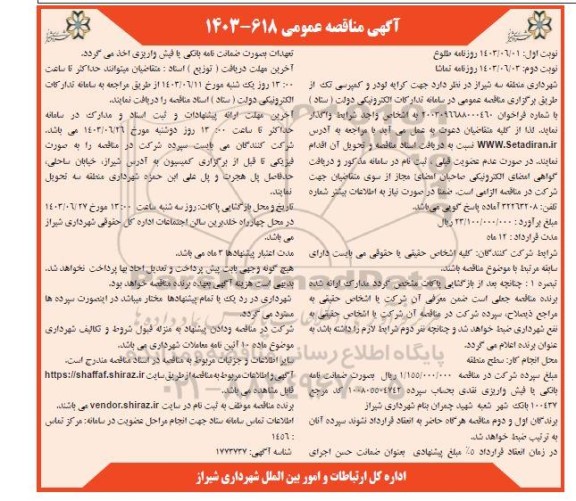 آگهی مناقصه عمومی ۶۱۸-۱۴۰۳
نوبت اول: ۱۴۰۳/۰۶/۰۱ روزنامه طلوع
نوبت دوم: ۱۴۰۳/۰۶/۰۳ روزنامه تماشا
شهرداری منطقه سه شیراز در نظر دارد جهت کرایه لودر و کمپرسی تک از
طریق برگزاری مناقصه عمومی در سامانه تدارکات الکترونیکی دولت ( ستاد )
با شماره فراخوان ۲۰۰۳۰۹۶۶۸۸۰۰۰۴۶۰ به اشخاص واجد شرایط واگذار
نماید. لذا از کلیه متقاضیان دعوت به عمل می آید با مراجعه به آدرس
WWW.Setadiran.ir نسبت به دریافت اسناد مناقصه و تحویل آن اقدام
نمایند. در صورت عدم عضویت قبلی ، ثبت نام در سامانه مذکور و دریافت
گواهی امضای الکترونیکی صاحبان امضای مجاز از سوی متقاضیان جهت
شرکت در مناقصه الزامی است. ضمنا در صورت نیاز به اطلاعات بیشتر شماره
تلفن: ۳۲۲۶۳۲۰۸ آماده پاسخ گویی می‌باشد.
مبلغ برآورد : ۲۳/۱۰۰/۰۰۰/۰۰۰ ریال
مدت قرارداد : ۱۲ ماه
شرایط شرکت کنندگان: کلیه اشخاص حقیقی یا حقوقی می بایست دارای
سابقه مرتبط با موضوع مناقصه باشند.
تبصره ۱ : چنانچه بعد از بازگشایی پاکات مشخص گردد مدارک ارائه شده
برنده مناقصه جعلی است ضمن معرفی آن شرکت یا اشخاص حقیقی به
مراجع ذیصلاح، سپرده شرکت در مناقصه آن شرکت یا اشخاص حقیقی به
نفع شهرداری ضبط خواهد شد و چنانچه نفر دوم شرایط لازم را داشته باشد به
عنوان برنده اعلام می گردد.
محل انجام کار: سطح منطقه
مبلغ سپرده شرکت در مناقصه ۱/۱۵۵/۰۰۰/۰۰۰ ریال بصورت ضمانت نامه
بانکی یا فیش واریزی نقدی بحساب سپرده کد مرجع
۱۰۰۴۳۷ بانک شهر شعبه شهید چمران بنام شهرداری شیراز
برندگان اول و دوم مناقصه هرگاه حاضر به انعقاد قرارداد نشوند سپرده آنان
به ترتیب ضبط خواهد شد.
در زمان انعقاد قرارداد ۵٪ مبلغ پیشنهادی بعنوان ضمانت حسن اجرای
تعهدات بصورت ضمانت نامه بانکی یا فیش واریزی اخذ می گردد.
آخرین مهلت دریافت ( توزیع ) اسناد : متقاضیان میتوانند حداکثر تا ساعت
۱۳:۰۰ روز یک شنبه مورخ ۱۴۰۳/۰۶/۱۱ از طریق مراجعه به سامانه تدارکات
الکترونیکی دولت ( ستاد ) اسناد مناقصه را دریافت نمایند.
آخرین مهلت ارائه پیشنهادات و ثبت اسناد و مدارک در سامانه
حداکثر تا ساعت ۱۳:۰۰ روز دوشنبه مورخ ۱۴۰۳/۰۶/۲۶ می باشد.
شرکت کنندگان می بایست سپرده شرکت در مناقصه را به صورت
فیزیکی تا قبل از برگزاری کمیسیون به آدرس شیراز، خیابان ساحلی،
حدفاصل پل هجرت و پل علی ابن حمزه شهرداری منطقه سه تحویل
نمایند.
تاریخ و محل بازگشایی پاکات: روز سه شنبه ساعت ۱۳:۰۰ مورخ ۱۴۰۳/۰۶/۲۷
در محل چهارراه خلدبرین سالن اجتماعات اداره کل حقوقی شهرداری شیراز
می باشد.
مدت اعتبار پیشنهادها ۳ ماه می باشد.
هیچ گونه وجهی بابت پیش پرداخت و تعدیل آحاد بها پرداخت نخواهد شد.
بدیهی است هزینه آگهی بعهده برنده مناقصه خواهد بود.
شهرداری در رد یک یا تمام پیشنهادها مختار میباشد در اینصورت سپرده ها
مسترد می گردد.
شرکت در مناقصه و دادن پیشنهاد به منزله قبول شروط و تکالیف شهرداری
موضوع ماده ۱۰ آئین نامه معاملات شهرداری می باشد.
سایر اطلاعات و جزئیات مربوط به مناقصه در اسناد مناقصه مندرج است.
آگهی و اطلاعات مربوط به مناقصه از طریق سایت https://shaffaf.shiraz.ir
قابل مشاهده می باشد.
برنده مناقصه موظف به ثبت نام در سایت vendor.shiraz.ir می باشند.
اطلاعات تماس سامانه ستاد جهت انجام مراحل عضویت در سامانه: مرکز تماس
: ۱۴۵۶
شناسه آگهی: ۱۷۷۳۷۳۷
اداره کل ارتباطات و امور بین الملل شهرداری شیراز